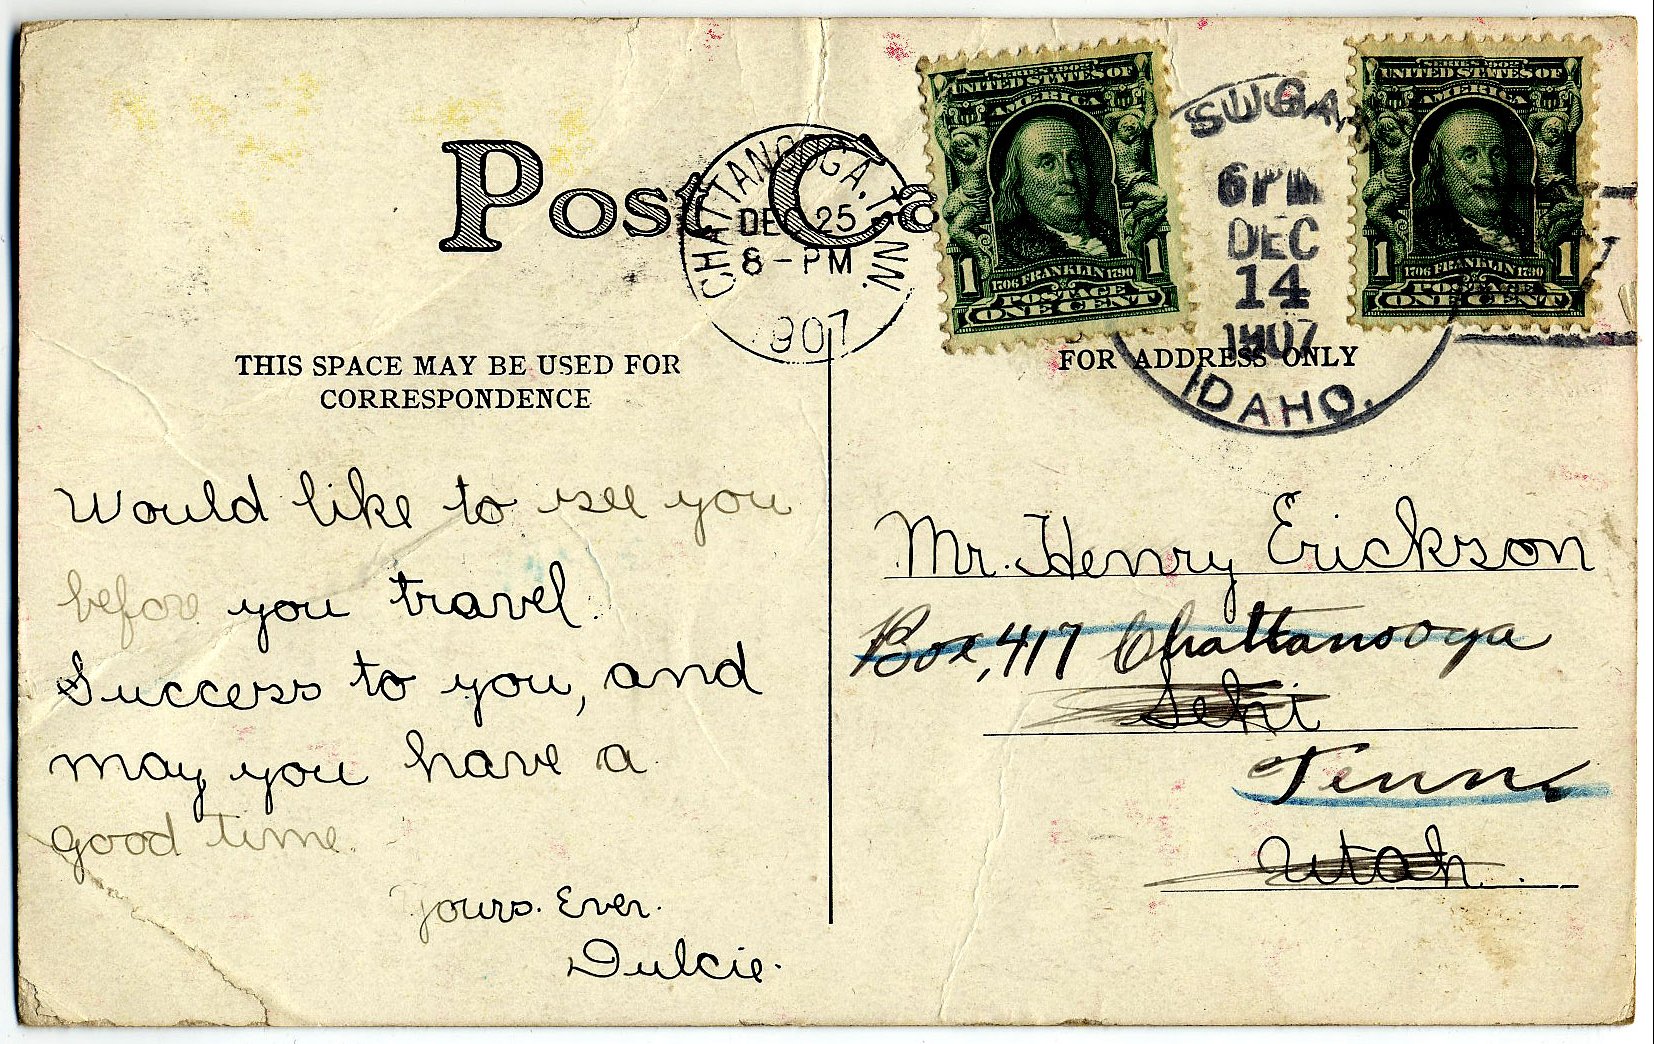 Post Ca
CHATTANOOGA, TENN.
DEC 25
8-PM
1907
SERIES 1902
UNITED STATES OF
AMERICA
1 1
1706 FRANKLIN 1790
POSTAGE
ONE CENT
SUGAR
6 PM
DEC
14
1907
IDAHO.
SERIES 1902
UNITED STATES OF
AMERICA
1 1
1706 FRANKLIN 1790
POSTAGE
ONE CENT
THIS SPACE MAY BE USED FOR
CORRESPONDENCE
FOR ADDRESS ONLY
Would like to see you
before you travel.
Success to you, and
may you have a
good time.
Yours. Ever.
Dulcie.
Mr. Henry Erickson
Box, 417 Chattanooga
Lehi
Tenn.
Utah.